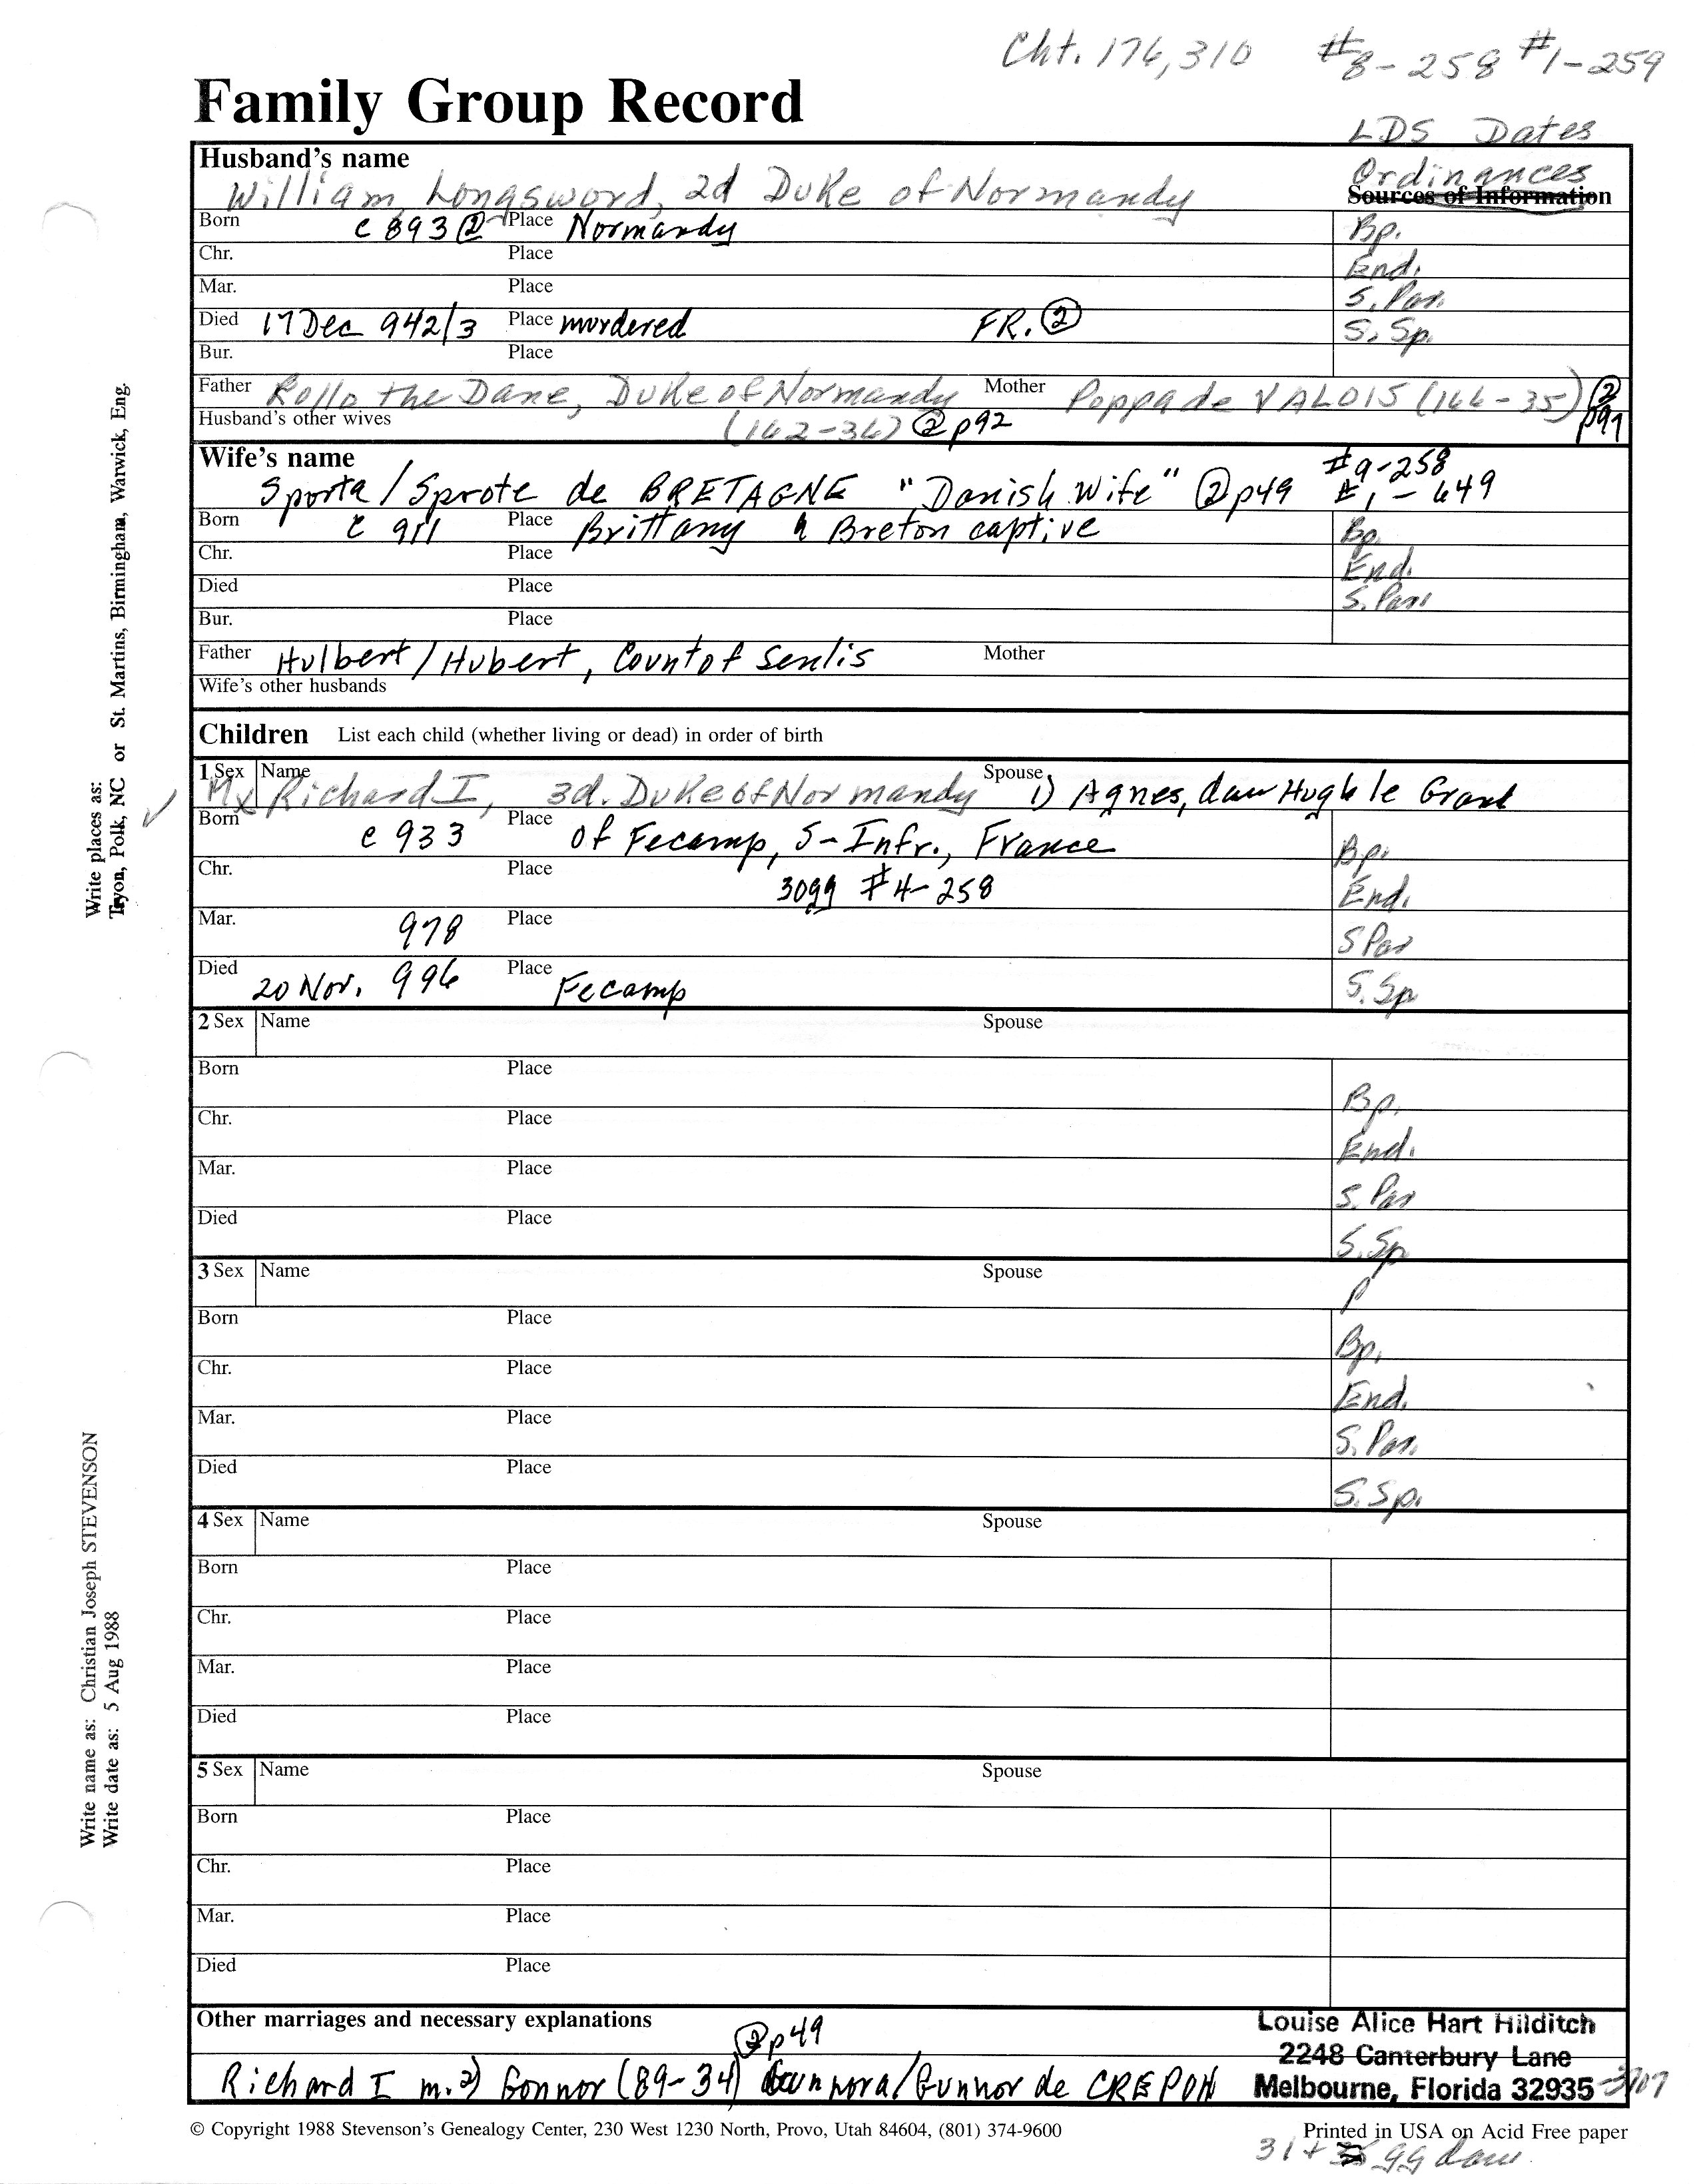 Cht. 176,310 #8-258 #1-259
Family Group Record
LDS Dates
Ordinances
Husband's name
Sources of Information
William Longsword, 2d Duke of Normandy
Born c 893 ② Place Normandy Bp.
Chr. Place End.
Mar. Place S. Par.
Died 17 Dec 942/3 Place murdered FR. ② S. Sp.
Bur. Place
Father Rollo the Dane, Duke of Normandy Mother Poppa de VALOIS (166-35) ② p91
Husband's other wives (162-36) ② p92
Wife's name #9-258
Sporta/Sprote de BRETAGNE "Danish Wife" ② p49 #1-649
Born c 911 Place Brittany a Breton captive Bp.
Chr. Place End.
Died Place S. Par.
Bur. Place
Father Hulbert/Hubert, Count of Senlis Mother
Wife's other husbands
Children List each child (whether living or dead) in order of birth
1 Sex Name Spouse
Mx Richard I, 3d. Duke of Normandy 1) Agnes, dau Hugh le Grand
Born c 933 Place of Fecamp, S-Infr., France Bp.
Chr. Place 30gg #4-258 End.
Mar. 978 Place S Par
Died 20 Nov. 996 Place Fecamp S. Sp
2 Sex Name Spouse
Born Place Bp.
Chr. Place End.
Mar. Place S. Par
Died Place S. Sp
3 Sex Name Spouse
Born Place Bp.
Chr. Place End.
Mar. Place S. Par.
Died Place S. Sp.
4 Sex Name Spouse
Born Place
Chr. Place
Mar. Place
Died Place
5 Sex Name Spouse
Born Place
Chr. Place
Mar. Place
Died Place
Other marriages and necessary explanations
② p49
Richard I m. 2) Gonnor (89-34) Gunnora/Gunnor de CREPON
Louise Alice Hart Hilditch
2248 Canterbury Lane
Melbourne, Florida 32935
© Copyright 1988 Stevenson's Genealogy Center, 230 West 1230 North, Provo, Utah 84604, (801) 374-9600
Printed in USA on Acid Free paper
31+ gg dau
Write places as:
Tryon, Polk, NC or St. Martins, Birmingham, Warwick, Eng.
Write name as: Christian Joseph STEVENSON
Write date as: 5 Aug 1988